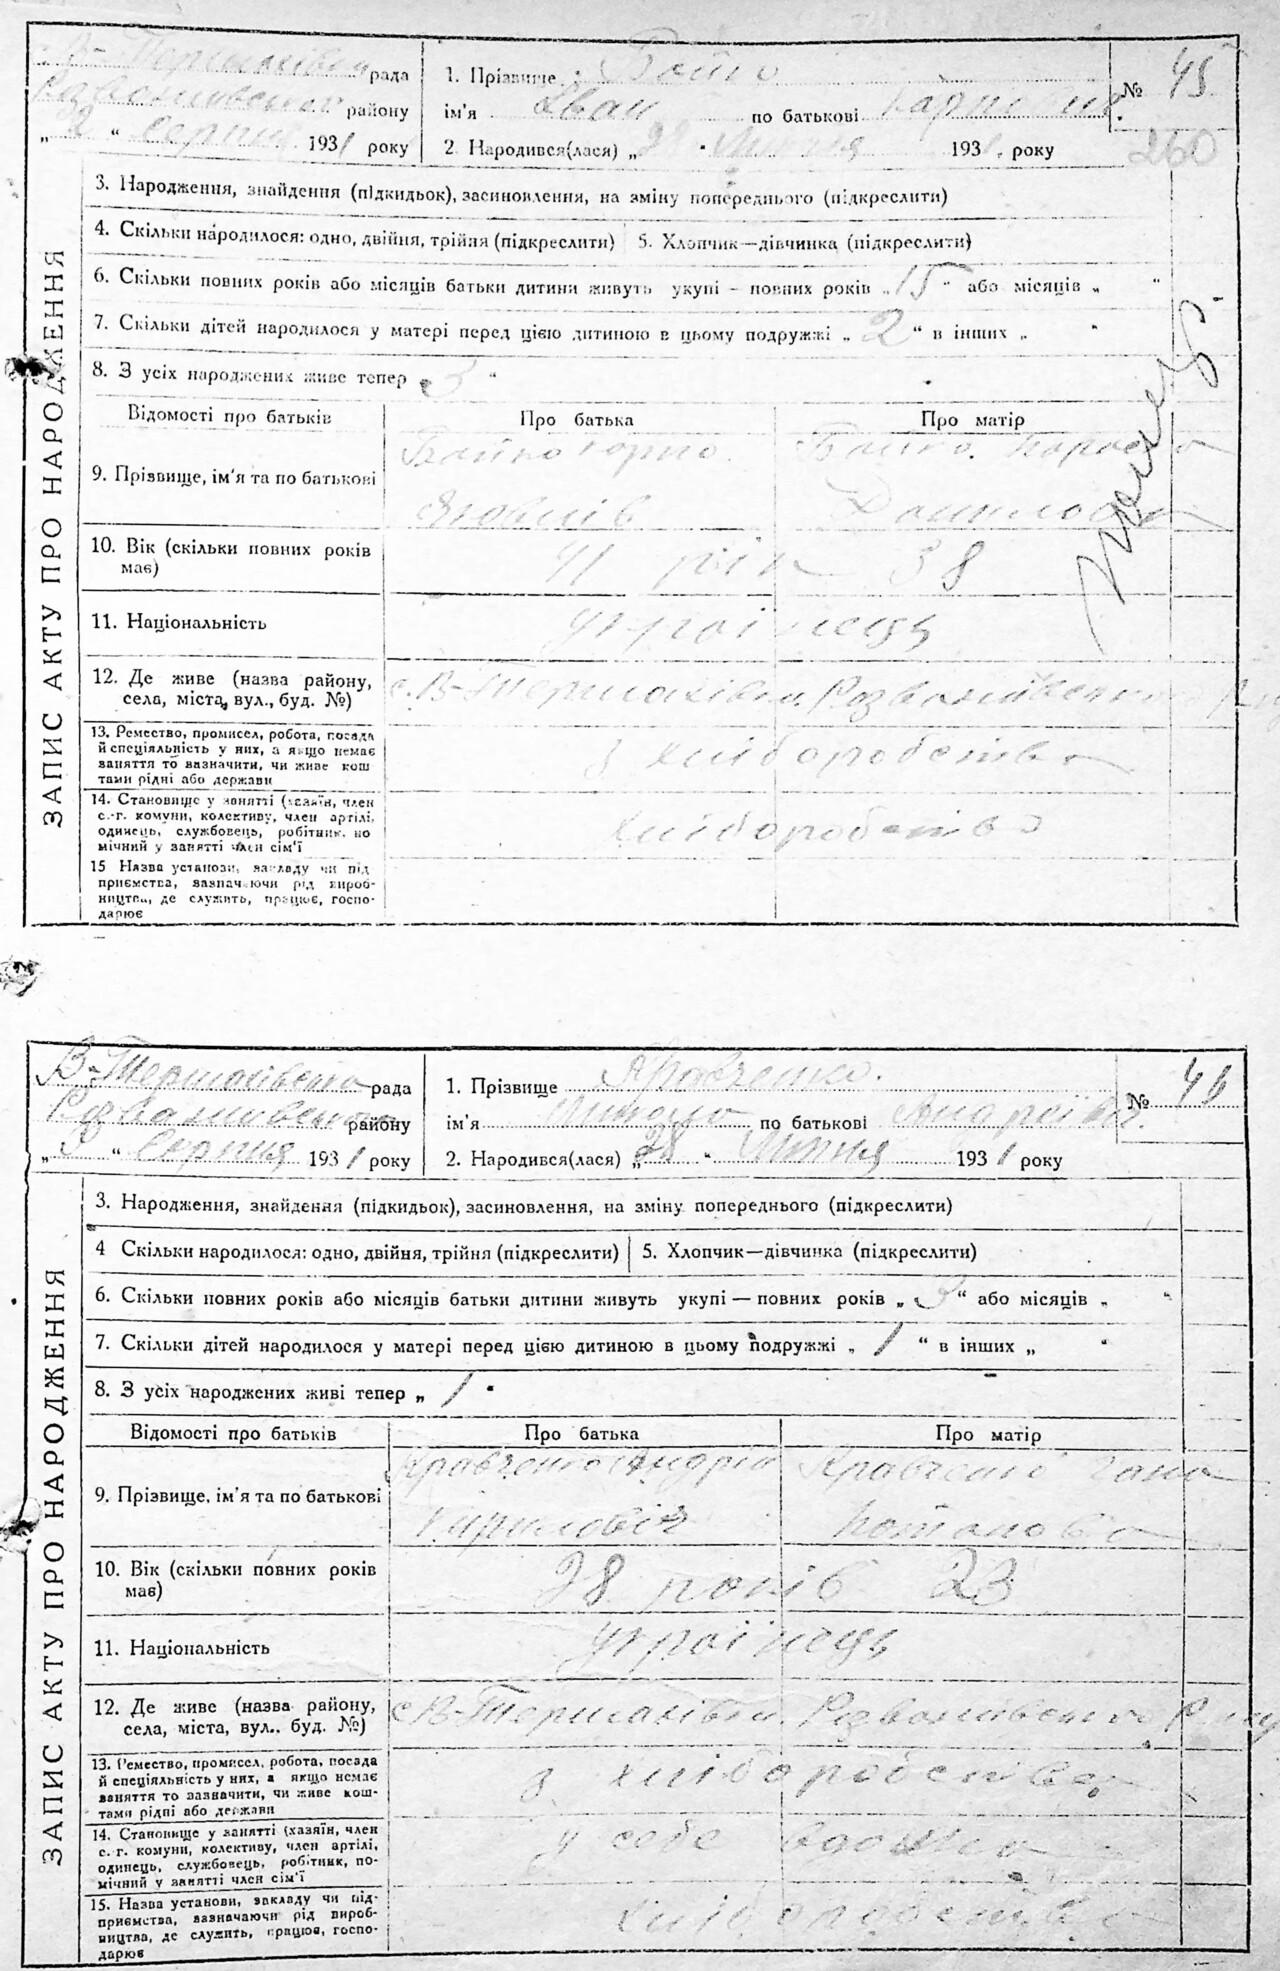 В-Термахівка рада
Розважівського району
„ 2 “ Серпня 1931 року
1. Прізвище Бойко
ім'я Іван по батькові Карпович
2. Народився(лася) „ 28 “ Липня 1931 року
№ 45
260
ЗАПИС АКТУ ПРО НАРОДЖЕННЯ
3. Народження, знайдення (підкидьок), засиновлення, на зміну попереднього (підкреслити)
4. Скільки народилося: одно, двійня, трійня (підкреслити) 5. Хлопчик—дівчинка (підкреслити)
6. Скільки повних років або місяців батьки дитини живуть укупі — повних років „ 15 “ або місяців „ “
7. Скільки дітей народилося у матері перед цією дитиною в цьому подружжі „ 2 “ в інших „ “
8. З усіх народжених живе тепер „ 3 “
Відомості про батьків Про батька Про матір
9. Прізвище, ім'я та по батькові
Бойко Карпо Бойко
Яковлів Данилова
10. Вік (скільки повних років має) 41 рік 38
11. Національність українець
12. Де живе (назва району, села, міста, вул., буд. №) с. В-Термахівка Розважівського
13. Ремество, промисел, робота, посада й спеціяльність у них, а якщо немає заняття то зазначити, чи живе коштами рідні або держави
з хліборобства
14. Становище у занятті (хазяїн, член с.-г. комуни, колективу, член артілі, одинець, службовець, робітник, помічний у занятті член сім'ї
хліборобство
15 Назва установи, закладу чи підприємства, зазначаючи рід виробництва, де служить, працює, господарює
В-Термахівська рада
Розважівського району
„ 3 “ Серпня 1931 року
1. Прізвище Кравченко
ім'я Микола по батькові Андрієвіч
2. Народився(лася) „ 28 “ Липня 1931 року
№ 46
ЗАПИС АКТУ ПРО НАРОДЖЕННЯ
3. Народження, знайдення (підкидьок), засиновлення, на зміну попереднього (підкреслити)
4 Скільки народилося: одно, двійня, трійня (підкреслити) 5. Хлопчик—дівчинка (підкреслити)
6. Скільки повних років або місяців батьки дитини живуть укупі — повних років „ 3 “ або місяців „ “
7. Скільки дітей народилося у матері перед цією дитиною в цьому подружжі „ 1 “ в інших „ “
8. З усіх народжених живі тепер „ 1 “
Відомості про батьків Про батька Про матір
9. Прізвище, ім'я та по батькові
Кравченко Андрій Кравченко Гана
Кирилович Потапова
10. Вік (скільки повних років має) 28 років 23
11. Національність українець
12. Де живе (назва району, села, міста, вул.. буд. №) с В-Термахівка Розважівського
13. Ремество, промисел, робота, посада й спеціяльність у них, а якщо немає заняття то зазначити, чи живе коштами рідні або держави
з хліборобства
14. Становище у занятті (хазяїн, член с. г. комуни, колективу, член артілі, одинець, службовець, робітник, помічний у занятті член сім'ї
у себе вдома
15. Назва установи, закладу чи підприємства, зазначаючи рід виробництва, де служить, працює, господарює
хліборобство